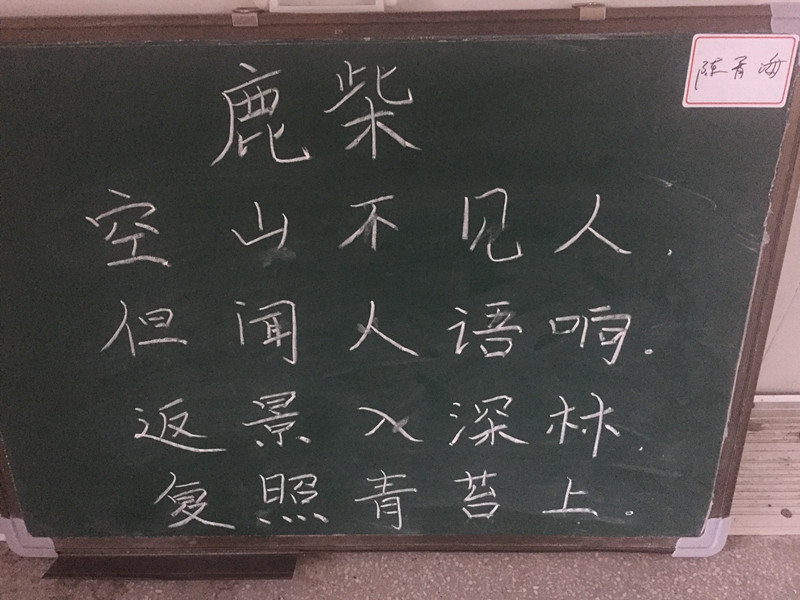 鹿柴
陈青海
空山不见人,
但闻人语响.
返景入深林,
复照青苔上。